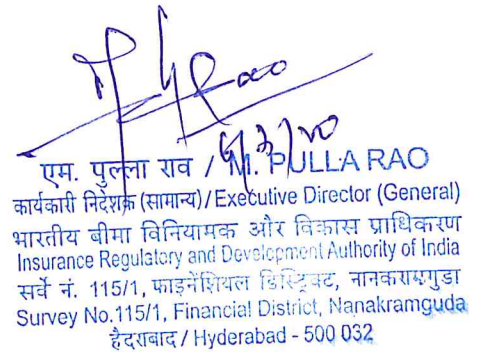 Rao
एम. पुल्ला राव / M. PULLA RAO
कार्यकारी निदेशक (सामान्य) / Executive Director (General)
भारतीय बीमा विनियामक और विकास प्राधिकरण
Insurance Regulatory and Development Authority of India
सर्वे नं. 115/1, फाइनेंशियल डिस्ट्रिक्ट, नानकरामगुडा
Survey No.115/1, Financial District, Nanakramguda
हैदराबाद / Hyderabad - 500 032